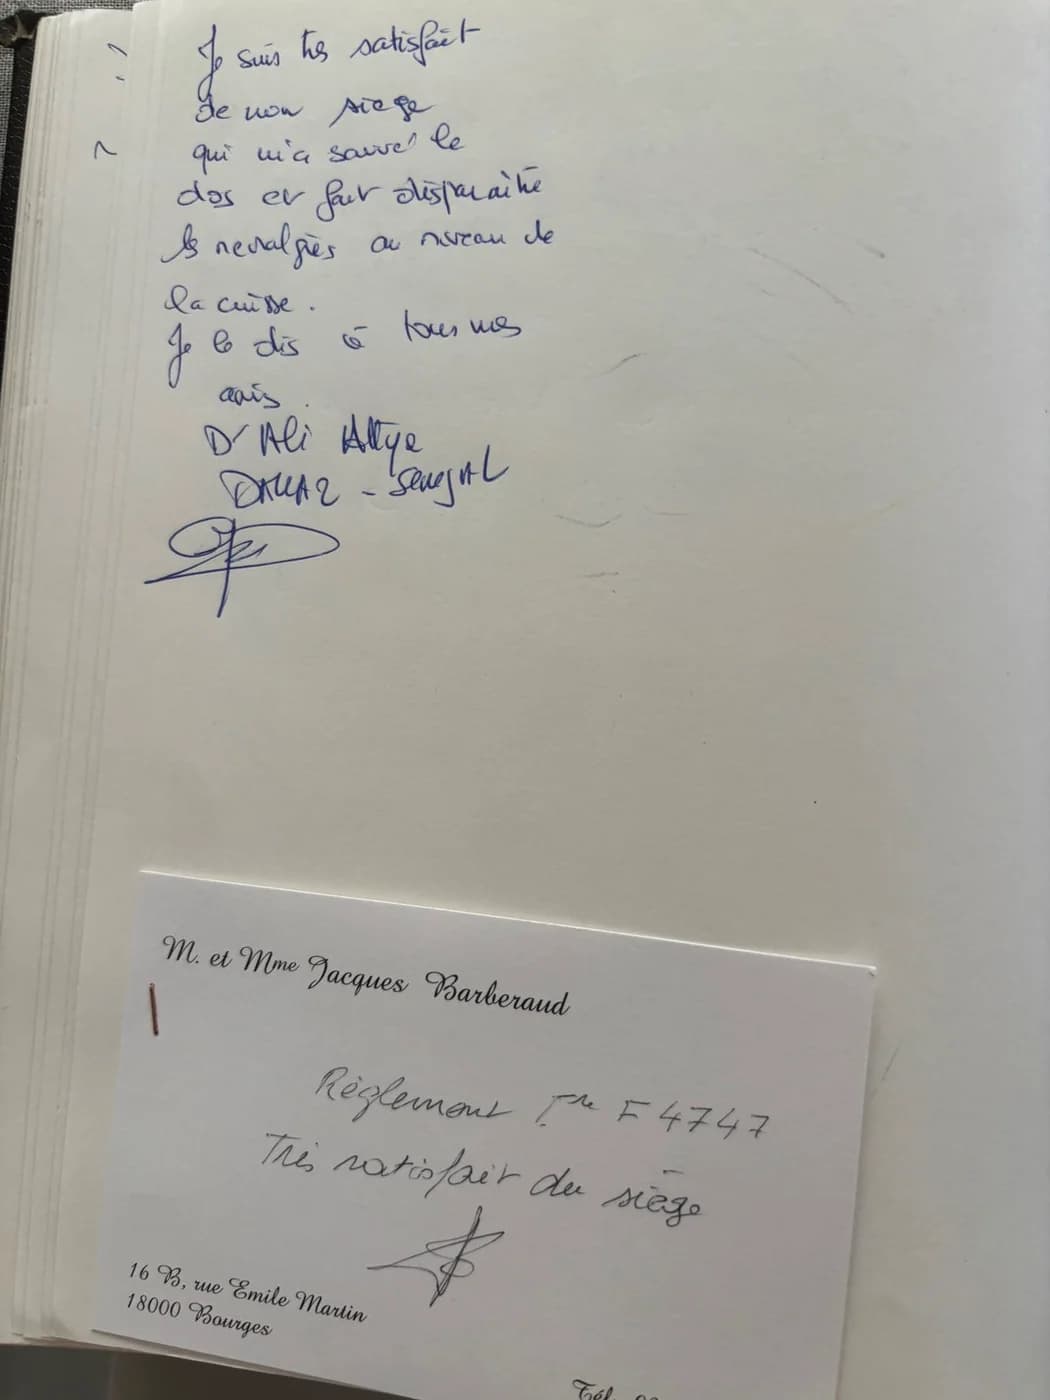 Je suis très satisfait
de mon siege
qui m'a sauvé le
dos et fait disparaitre
les nevralgies au niveau de
la cuisse.
Je le dis à tous mes
amis.
Dr Ali Attye
DAKAR - SenegAL
M. et Mme Jacques Barberaud
Règlement F 4747
Très satisfait du siège
16 B, rue Emile Martin
18000 Bourges
Tél.